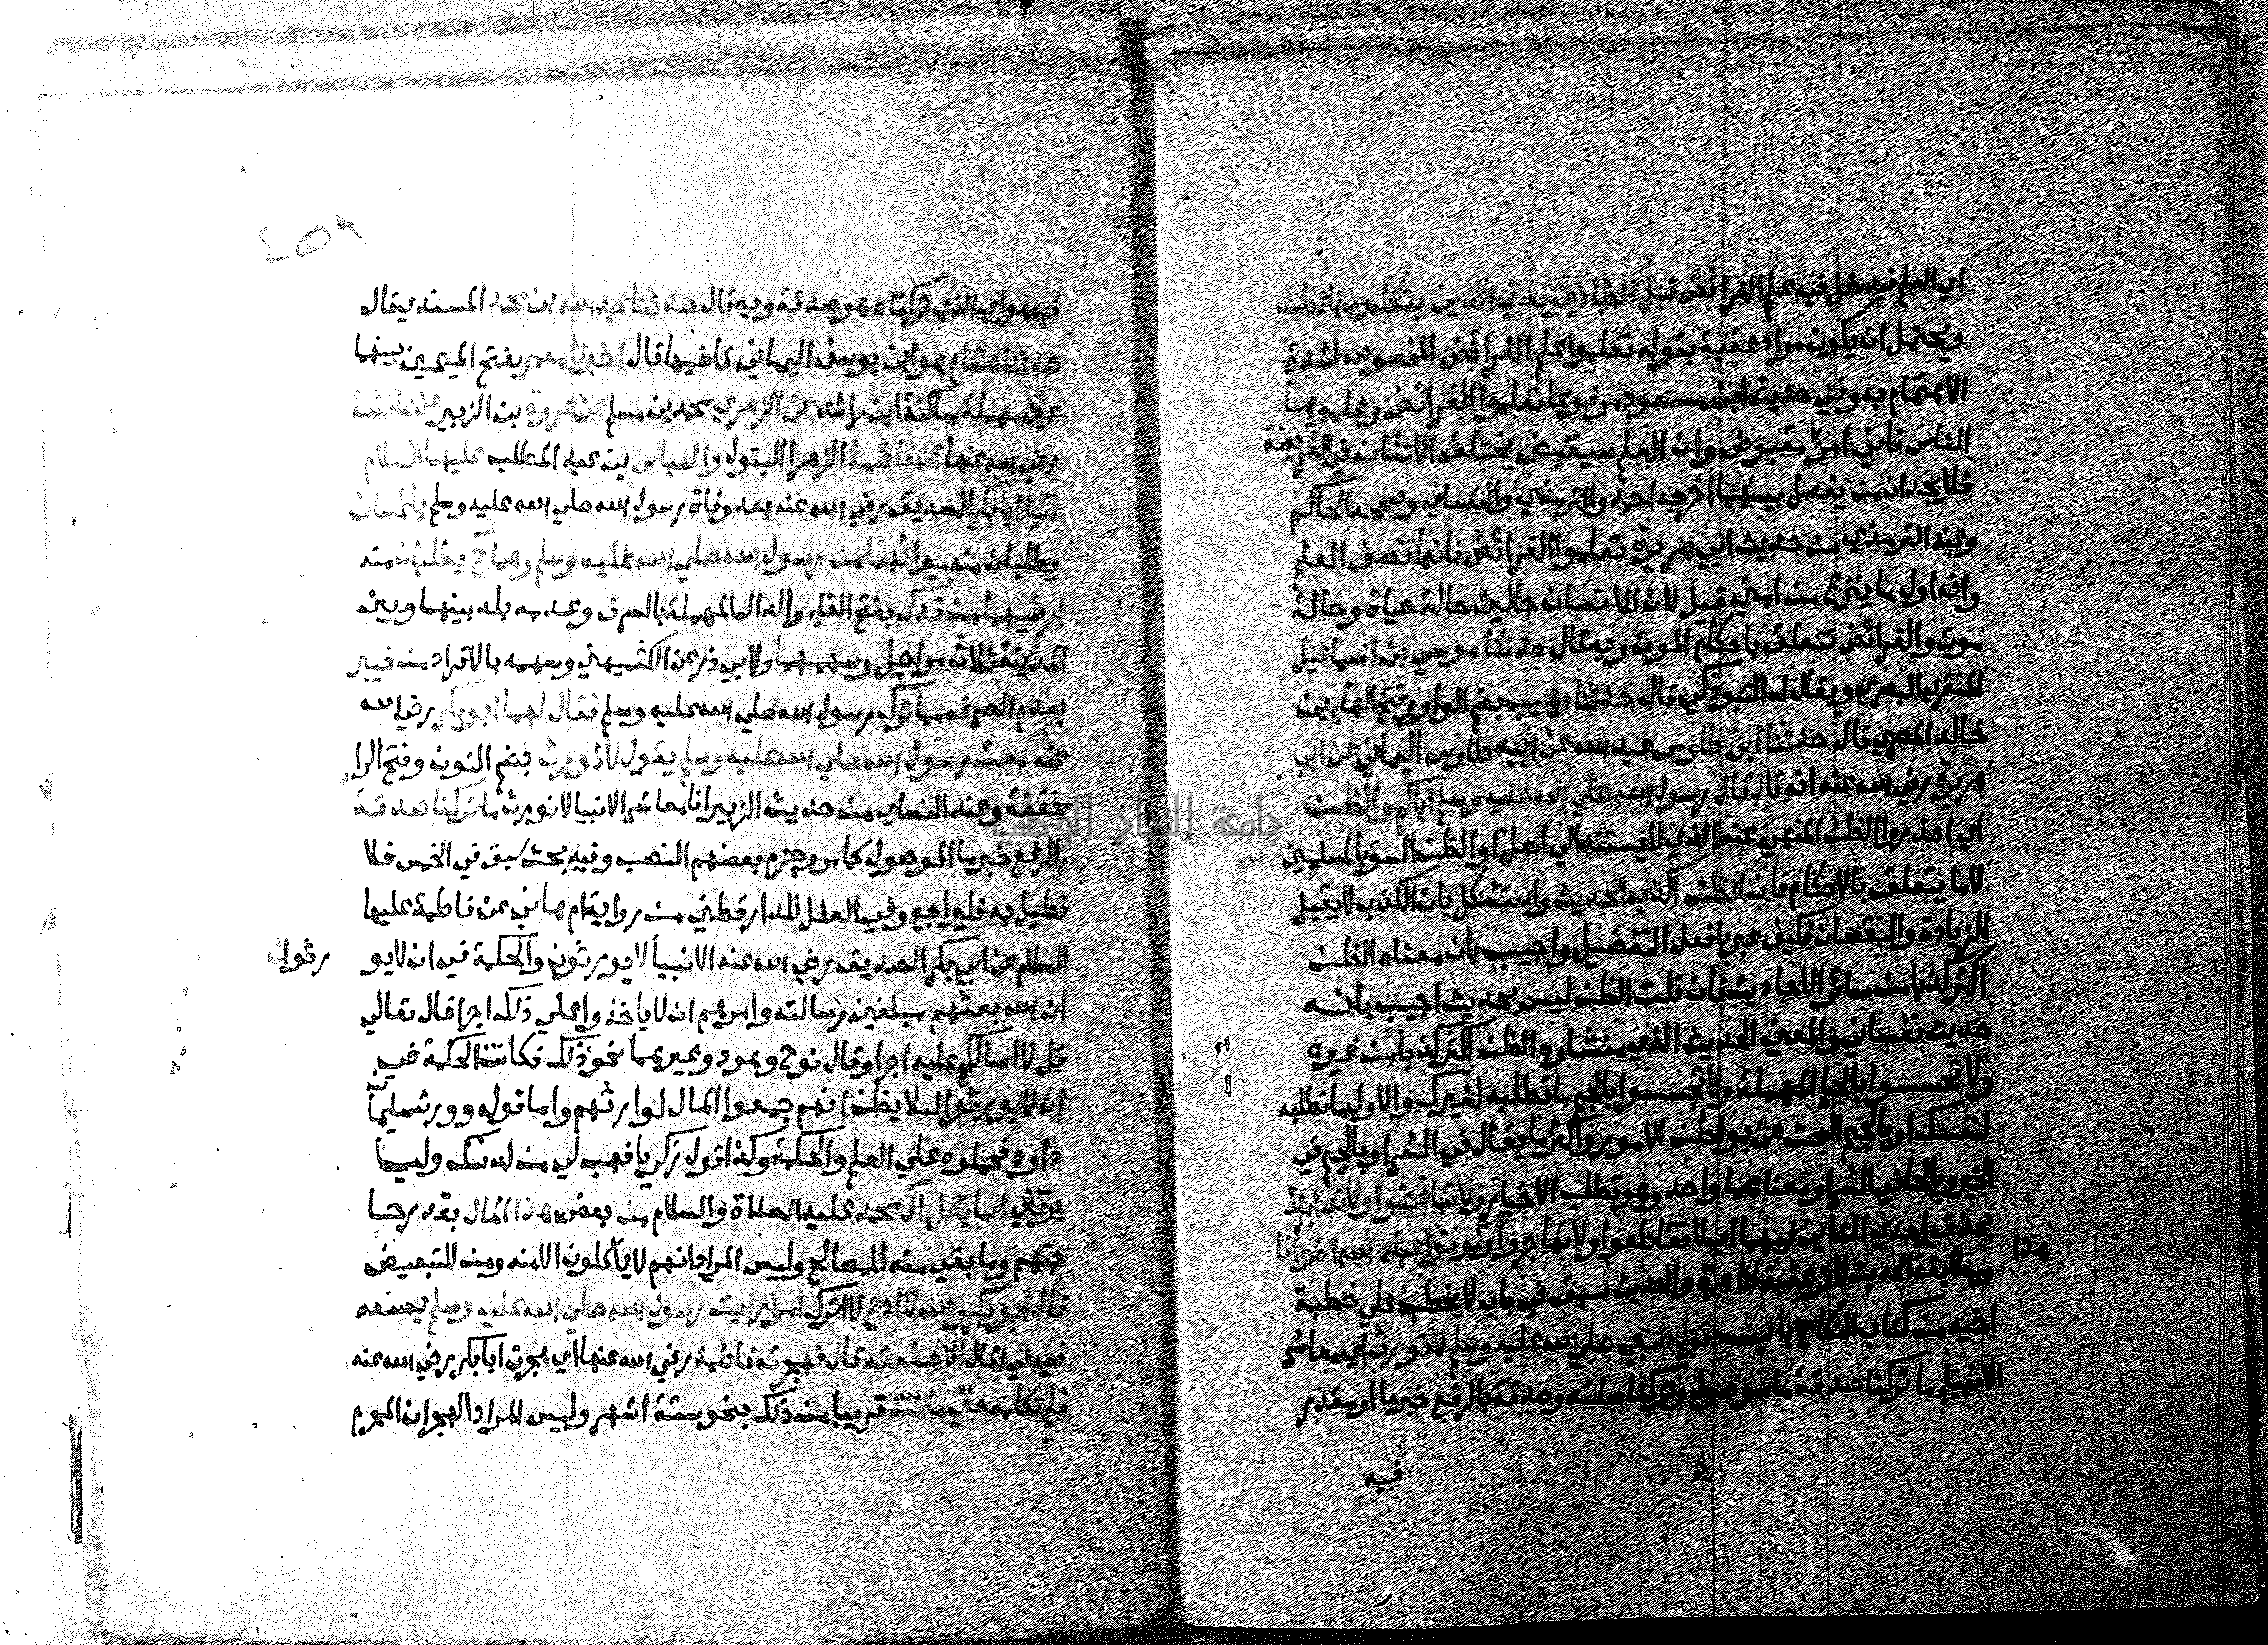 اي العلم فيدخل فيه علم الفرائض قبل الظانين يعني الذين يتكلمون بالظن
ويحتمل ان يكون مراد عقبة بقوله تعلموا علم الفرائض المخصوص لشدة
الاهتمام به وفي حديث ابن مسعود مرفوعا تعلموا الفرائض وعلموها
الناس فاني امرؤ مقبوض وان العلم سيقبض يختلف الاثنان في الفريضة
فلا يجدان من يفصل بينهما اخرجه احمد والترمذي والنساي وصححه الحاكم
وعند الترمذي من حديث ابي هريرة تعلموا الفرائض فانها نصف العلم
وانه اول ما ينزع من امتي قيل لان للانسان حالين حالة حياة وحالة
موت والفرائض تتعلق باحكام الموت وبه قال حدثنا موسي بن اسماعيل
المنقري البصري ويقال له التبوذكي قال حدثنا وهيب بضم الواو وفتح الهاء بن
خالد البصري قال حدثنا ابن طاوس عبد الله عن ابيه طاوس اليماني عن ابي
هريرة رضي الله عنه انه قال قال رسول الله صلي الله عليه وسلم اياكم والظن
اي احذروا الظن المنهي عنه الذي لا يستند الي اصل او الظن السوء بالمسلمين
لا ما يتعلق بالاحكام فان الظن اكذب الحديث واستشكل بان الكذب لا يقبل
الزيادة والنقصان فكيف عبر بافعل التفضيل واجيب بان معناه الظن
اكثر كذبا من سائر الاحاديث فان قلت الظن ليس بحديث اجيب بانه
حديث نفساني والمعني الحديث الذي منشاوه الظن اكثر كذبا من غيره
ولا تحسسوا بالحاء المهملة ولا تجسسوا بالجيم ما تطلبه لغيرك والاولي ما تطلبه
لنفسك او بالجيم البحث عن بواطن الامور واكثر ما يقال في الشر او بالجيم في
الخير وبالحا في الشر او معناهما واحد وهو تطلب الاخبار ولا تباغضوا ولا تدابروا
بحذف احدي التاءين فيهما اي لا تقاطعوا ولا تهاجروا وكونوا عباد الله اخوانا
مطابقة الحديث لاثر عقبة ظاهرة والحديث سبق في باب لا يخطب علي خطبة
اخيه من كتاب النكاح باب قول النبي صلي الله عليه وسلم لا نورث اي معاشر
الانبياء ما تركنا صدقة ما موصول وتركنا صلته وصدقة بالرفع خبر ما او مقدر
فيه
٤٥٩
فيه هو اي الذي تركناه هو صدقة وبه قال حدثنا عبد الله بن محمد المسندي قال
حدثنا هشام هو ابن يوسف اليماني قاضيها قال اخبرنا معمر بفتح الميمين بينهما
عين مهملة ساكنة ابن راشد عن الزهري محمد بن مسلم عن عروة بن الزبير عن عائشة
رضي الله عنها ان فاطمة الزهرا البتول والعباس بن عبد المطلب عليهما السلام
اتيا ابا بكر الصديق رضي الله عنه بعد وفاة رسول الله صلي الله عليه وسلم يلتمسان
يطلبان منه ميراثهما من رسول الله صلي الله عليه وسلم وهما ح يطلبان منه
ارضيهما من فدك بفتح الفاء والدال المهملة بالصرف وعدمه بلد بينها وبين
المدينة ثلاث مراحل وسهمهما ولابي ذر عن الكشميهني وسهمه بالافراد من خيبر
بعدم الصرف مما ترك رسول الله صلي الله عليه وسلم فقال لهما ابو بكر رضي الله
عنه سمعت رسول الله صلي الله عليه وسلم يقول لا نورث بضم النون وفتح الرا
مخففة وعند النساي من حديث الزبير انا معاشر الانبيا لا نورث ما تركنا صدقة
بالرفع خبر ما الموصول كما مر وجزم بعضهم النصب وفيه بحث سبق في الخمس فلا
نطيل به فليراجع وفي العلل للدارقطني من رواية ام هاني عن فاطمة عليها
السلام عن ابي بكر الصديق رضي الله عنه الانبيا لا يورثون والحكمة فيه ان لا يو رثوا
ان الله بعثهم مبلغين رسالته وامرهم ان لا ياخذوا علي ذلك اجرا قال تعالي
قل لا اسالكم عليه اجرا وقال نوح وهود وغيرهما نحو ذلك فكانت الحكمة في
ان لا يورثوا لئلا يظن انهم جمعوا المال لوارثهم واما قوله وورث سليمان
داود فحملوه علي العلم والحكمة وكذا قول زكريا فهب لي من لدنك وليا
يرثني انما ياكل آل محمد عليه الصلاة والسلام من بعض هذا المال بقدر حا
جتهم وما بقي منه للمصالح وليس المراد انهم لا ياكلون الا منه ومن للتبعيض
قال ابو بكر والله لا ادع لا اترك امرا رايت رسول الله صلي الله عليه وسلم يصنعه
فيه في المال الا صنعته قال فهجرته فاطمة رضي الله عنها اي هجرت ابا بكر رضي الله عنه
فلم تكلمه حتي ماتت قريبا من ذلك بنحو ستة اشهر وليس المراد الهجران المحرم